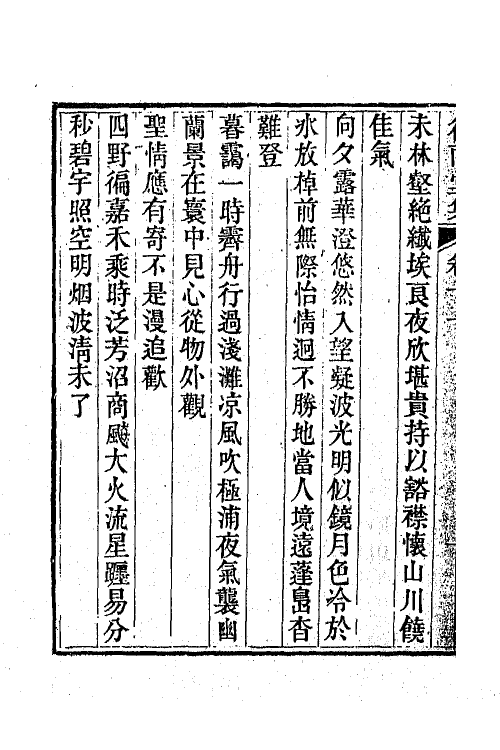 未林壑絶纖埃良夜欣堪貴持以豁襟懷山川饒
佳氣
向夕露華澄悠然入望凝波光明似鏡月色冷於
氷放棹前無際怡情迥不勝地當人境遠蓬島杳
難登
暮靄一時霽舟行過淺灘凉風吹極浦夜氣襲幽
蘭景在寰中見心從物外觀
聖情應有寄不是漫追歡
四野徧嘉禾乘時泛芳沼商飈大火流星躔易分
秒碧宇照空明烟波淸未了